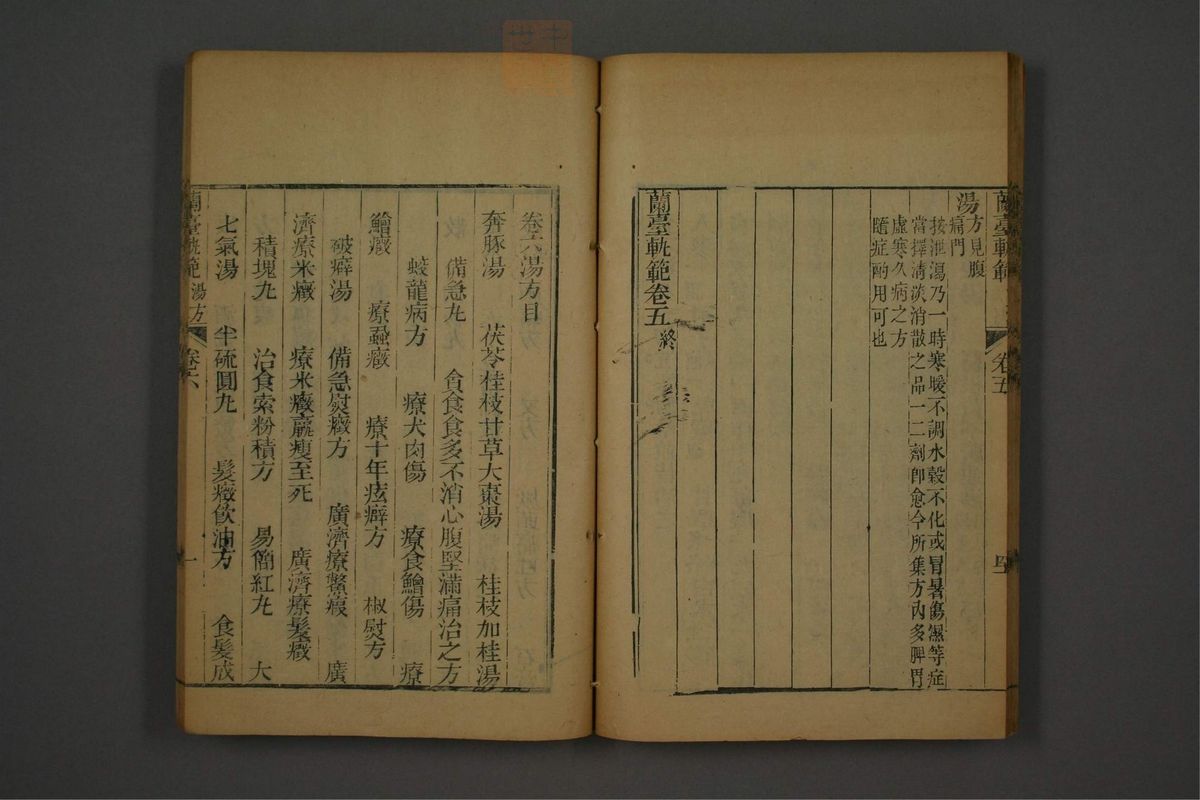 蘭臺軌範
卷五
湯方見腹
痛門
按泄瀉乃一時寒暖不調水穀不化或冒暑傷濕等症
當擇清淡消散之品一二劑卽愈今所集方內多脾胃
虛寒久病之方
隨症酌用可也
蘭臺軌範卷五 終
卷六湯方目
奔豚湯 茯苓桂枝甘草大棗湯 桂枝加桂湯
備急丸 貪食食多不消心腹堅滿痛治之方
蛟龍病方 療犬肉傷 療食鱠傷 療
鱠癥 療蝨癥 療十年痃癖方 椒熨方
破癖湯 備急熨癥方 廣濟療鱉瘕 廣
濟療米癥 療米癥羸瘦至死 廣濟療髮癥
積塊丸 治食索粉積方 易簡紅丸 大
七氣湯 半硫圓丸 髮癥飲油方 食髮成
蘭臺軌範 湯方 卷六 一